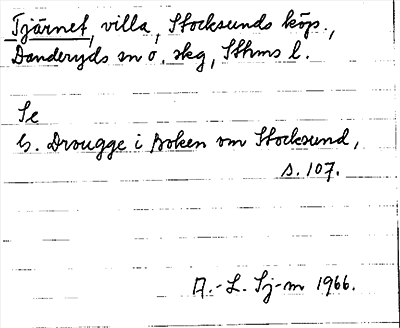 Tjärnet, villa, Stocksunds köp.,
Danderyds sn o. skg, Sthms l.
Se
G. Drougge i Boken om Stocksund,
s. 107.
A.-L. Sj-m 1966.